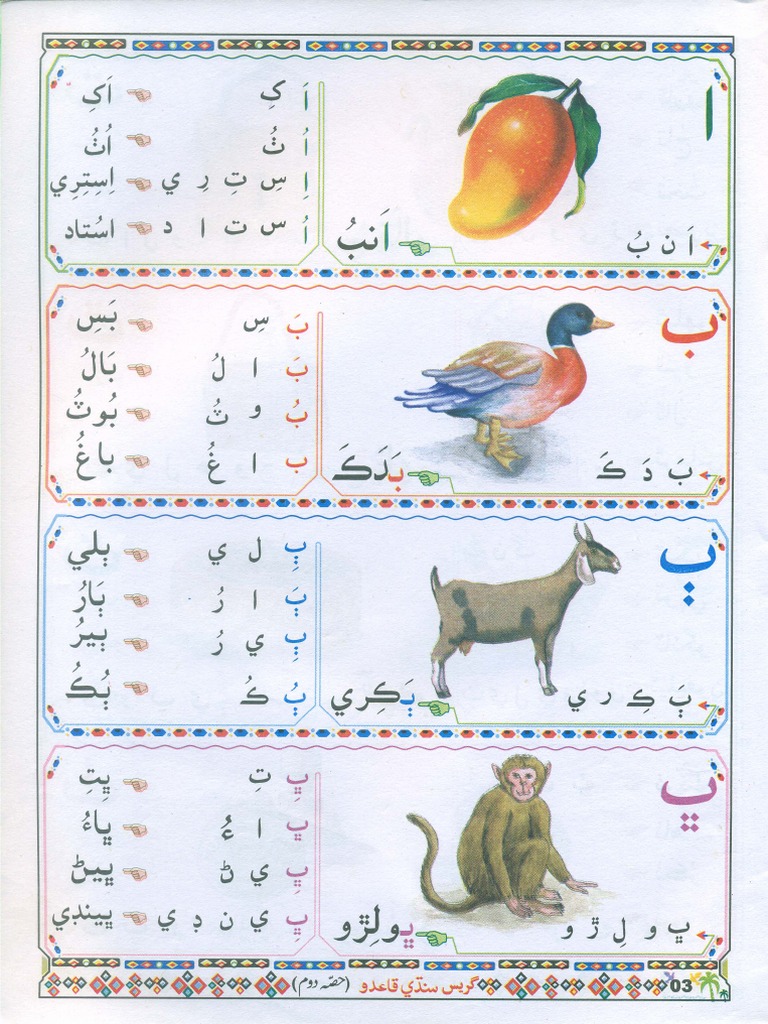 ا
اَ ن بُ
اَنبُ
اَ کِ اَکِ
اُ ٺُ اُٺُ
اِ سِ تِ رِ ي اِسِتِرِي
اُ س ت ا د اسُتاد
ب
بَ دَ ڪَ
بَدَڪَ
بَ سِ بَسِ
بَ ا لُ بَالُ
بُ و ٽُ بُوٽُ
ب ا غُ باغُ
ٻ
ٻَ ڪِ ر ي
ٻَڪِري
ٻِ ل ي ٻلي
ٻَ ا رُ ٻَارُ
ٻِ ي رُ ٻيرُ
ٻُ ڪُ ٻُڪُ
ڀ
ڀ و لِ ڙ و
ڀولِڙو
ڀِ تِ ڀِتِ
ڀ ا ءُ ڀاءُ
ڀِ ي ڻ ڀيڻ
ڀِ ي ن ڊ ي ڀينڊي
03 گريس سنڌي قاعدو (حصّہ دوم)